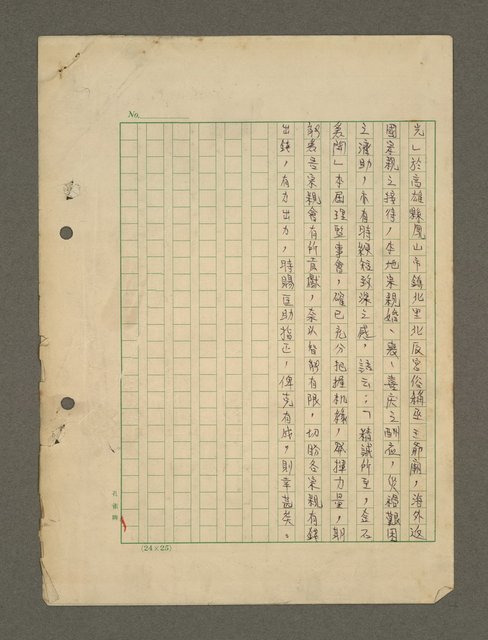 No.
光」於高雄縣鳳山市鎮北里北辰宮俗稱巫王爺廟,海外返
國宗親之接待,本地宗親婚、喪、喜慶之酬應,災禍艱困
之濟助,亦有時綆短致深之感,語云:「精誠所至,金石
為開」本屆理監事會,確已充分把握机緣,發揮力量,期
務為吾宗親會有所貢獻,奈以智能有限,切盼各宗親有錢
出錢,有力出力,時賜匡助指正,俾克有成,則幸甚矣。
(24×25)